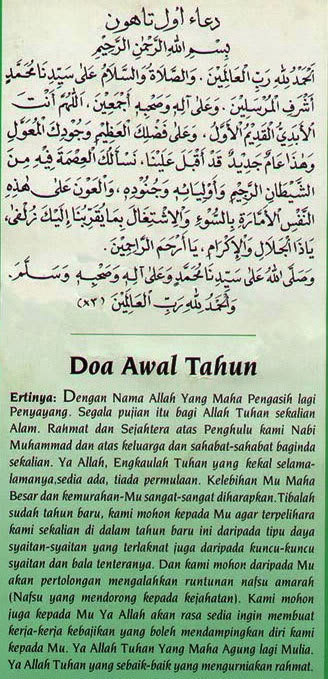 دعاء اول تاهون
بِسْمِ اللهِ الرَّحْمٰنِ الرَّحِيْمِ
اَلْحَمْدُ لِلّٰهِ رَبِّ الْعَالَمِيْنَ. وَالصَّلَاةُ وَالسَّلَامُ عَلٰى سَيِّدِنَا مُحَمَّدٍ
أَشْرَفِ الْمُرْسَلِيْنَ. وَعَلٰى اٰلِهِ وَصَحْبِهِ أَجْمَعِيْنَ. اَللّٰهُمَّ أَنْتَ
الْأَبَدِيُّ الْقَدِيْمُ الْأَوَّلُ. وَعَلٰى فَضْلِكَ الْعَظِيْمِ وَجُوْدِكَ الْمُعَوَّلُ
وَهٰذَا عَامٌ جَدِيْدٌ قَدْ أَقْبَلَ عَلَيْنَا. نَسْأَلُكَ الْعِصْمَةَ فِيْهِ مِنَ
الشَّيْطَانِ الرَّجِيْمِ وَأَوْلِيَائِهِ وَجُنُوْدِهِ. وَالْعَوْنَ عَلٰى هٰذِهِ
النَّفْسِ الْأَمَّارَةِ بِالسُّوْءِ وَالْاِشْتِغَالَ بِمَا يُقَرِّبُنَا إِلَيْكَ زُلْفٰى،
يَا ذَا الْجَلَالِ وَالْإِكْرَامِ. يَا أَرْحَمَ الرَّاحِمِيْنَ.
وَصَلَّى اللهُ عَلٰى سَيِّدِنَا مُحَمَّدٍ وَعَلٰى اٰلِهِ وَصَحْبِهِ وَسَلَّمَ.
وَالْحَمْدُ لِلّٰهِ رَبِّ الْعَالَمِيْنَ (٣×)
Doa Awal Tahun
Ertinya: Dengan Nama Allah Yang Maha Pengasih lagi
Penyayang. Segala pujian itu bagi Allah Tuhan sekalian
Alam. Rahmat dan Sejahtera atas Penghulu kami Nabi
Muhammad dan atas keluarga dan sahabat-sahabat baginda
sekalian. Ya Allah, Engkaulah Tuhan yang kekal selama-
lamanya,sedia ada, tiada permulaan. Kelebihan Mu Maha
Besar dan kemurahan-Mu sangat-sangat diharapkan.Tibalah
sudah tahun baru, kami mohon kepada Mu agar terpelihara
kami sekalian di dalam tahun baru ini daripada tipu daya
syaitan-syaitan yang terlaknat juga daripada kuncu-kuncu
syaitan dan bala tenteranya. Dan kami mohon daripada Mu
akan pertolongan mengalahkan runtunan nafsu amarah
(Nafsu yang mendorong kepada kejahatan). Kami mohon
juga kepada Mu Ya Allah akan rasa sedia ingin membuat
kerja-kerja kebajikan yang boleh mendampingkan diri kami
kepada Mu. Ya Allah Tuhan Yang Maha Agung lagi Mulia.
Ya Allah Tuhan yang sebaik-baik yang mengurniakan rahmat.